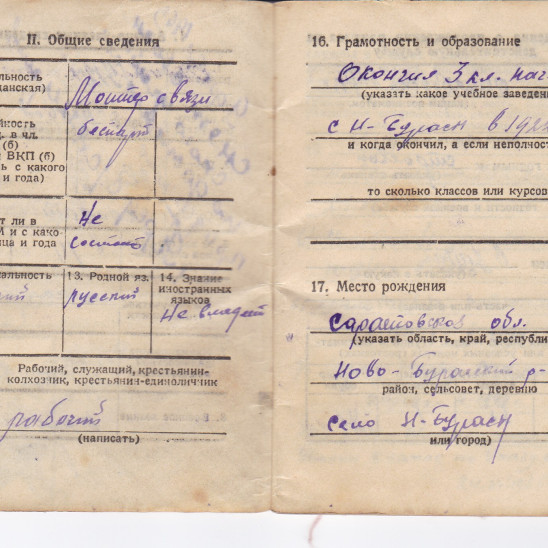 II. Общие сведения
льность
анская)
Монтер связи
йность
д. в чл.
(б)
ВКП (б)
ь с какого
и года)
беспарт.
т ли в
М и с како-
ица и года
Не
состоит
альность
ский
13. Родной яз.
русский
14. Знание
иностранных
языков
Не владеет
Рабочий, служащий, крестьянин-
колхозник, крестьянин-единоличник
рабочий
(написать)
16. Грамотность и образование
Окончил 3 кл. нач
(указать какое учебное заведен
с Н-Бурасы в
и когда окончил, а если неполност
то сколько классов или курсов
17. Место рождения
Саратовская обл.
(указать область, край, республи
Ново-Бурасский р-
район, сельсовет, деревню
село Н-Бурасы
или город)